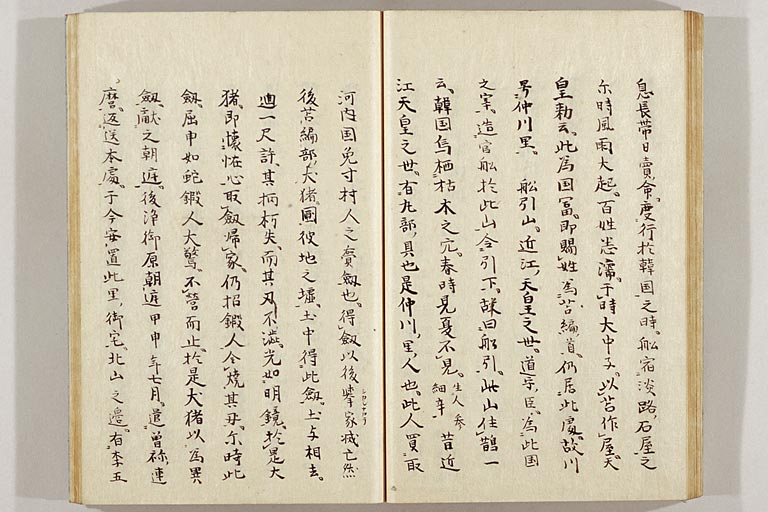 息長帯日賣命度行於韓国之時舩宿淡路石屋之
尓時風雨大起百姓悉濡于時大中子以苫作屋天
皇勅云此為国冨即賜姓為苫編首仍居此處故川
号仲川里 舩引山近江天皇之世道守臣為此国
之宰造官舩於此山令引下故曰舩引此山住鵲一
云韓国烏栖枯木之穴春時見夏不見生人参細辛 昔近
江天皇之世有丸部具也是仲川里人也此人買取
河内国兔寸村人之賣劔也得劔以後挙家滅亡然
後苫編部犬猪圃彼地之墟土中得此劔土与相去
廻一尺許其柄朽失而其刃不澁光如明鏡於是犬
猪即懐恠心取劔帰家仍招鍛人令焼其刃尓時此
劔屈申如蛇鍛人大驚不営而止於是犬猪以為異
劔献之朝廷後浄御原朝廷甲申年七月遣曽祢連
麿返送本處于今安置此里御宅北山之邊有李五